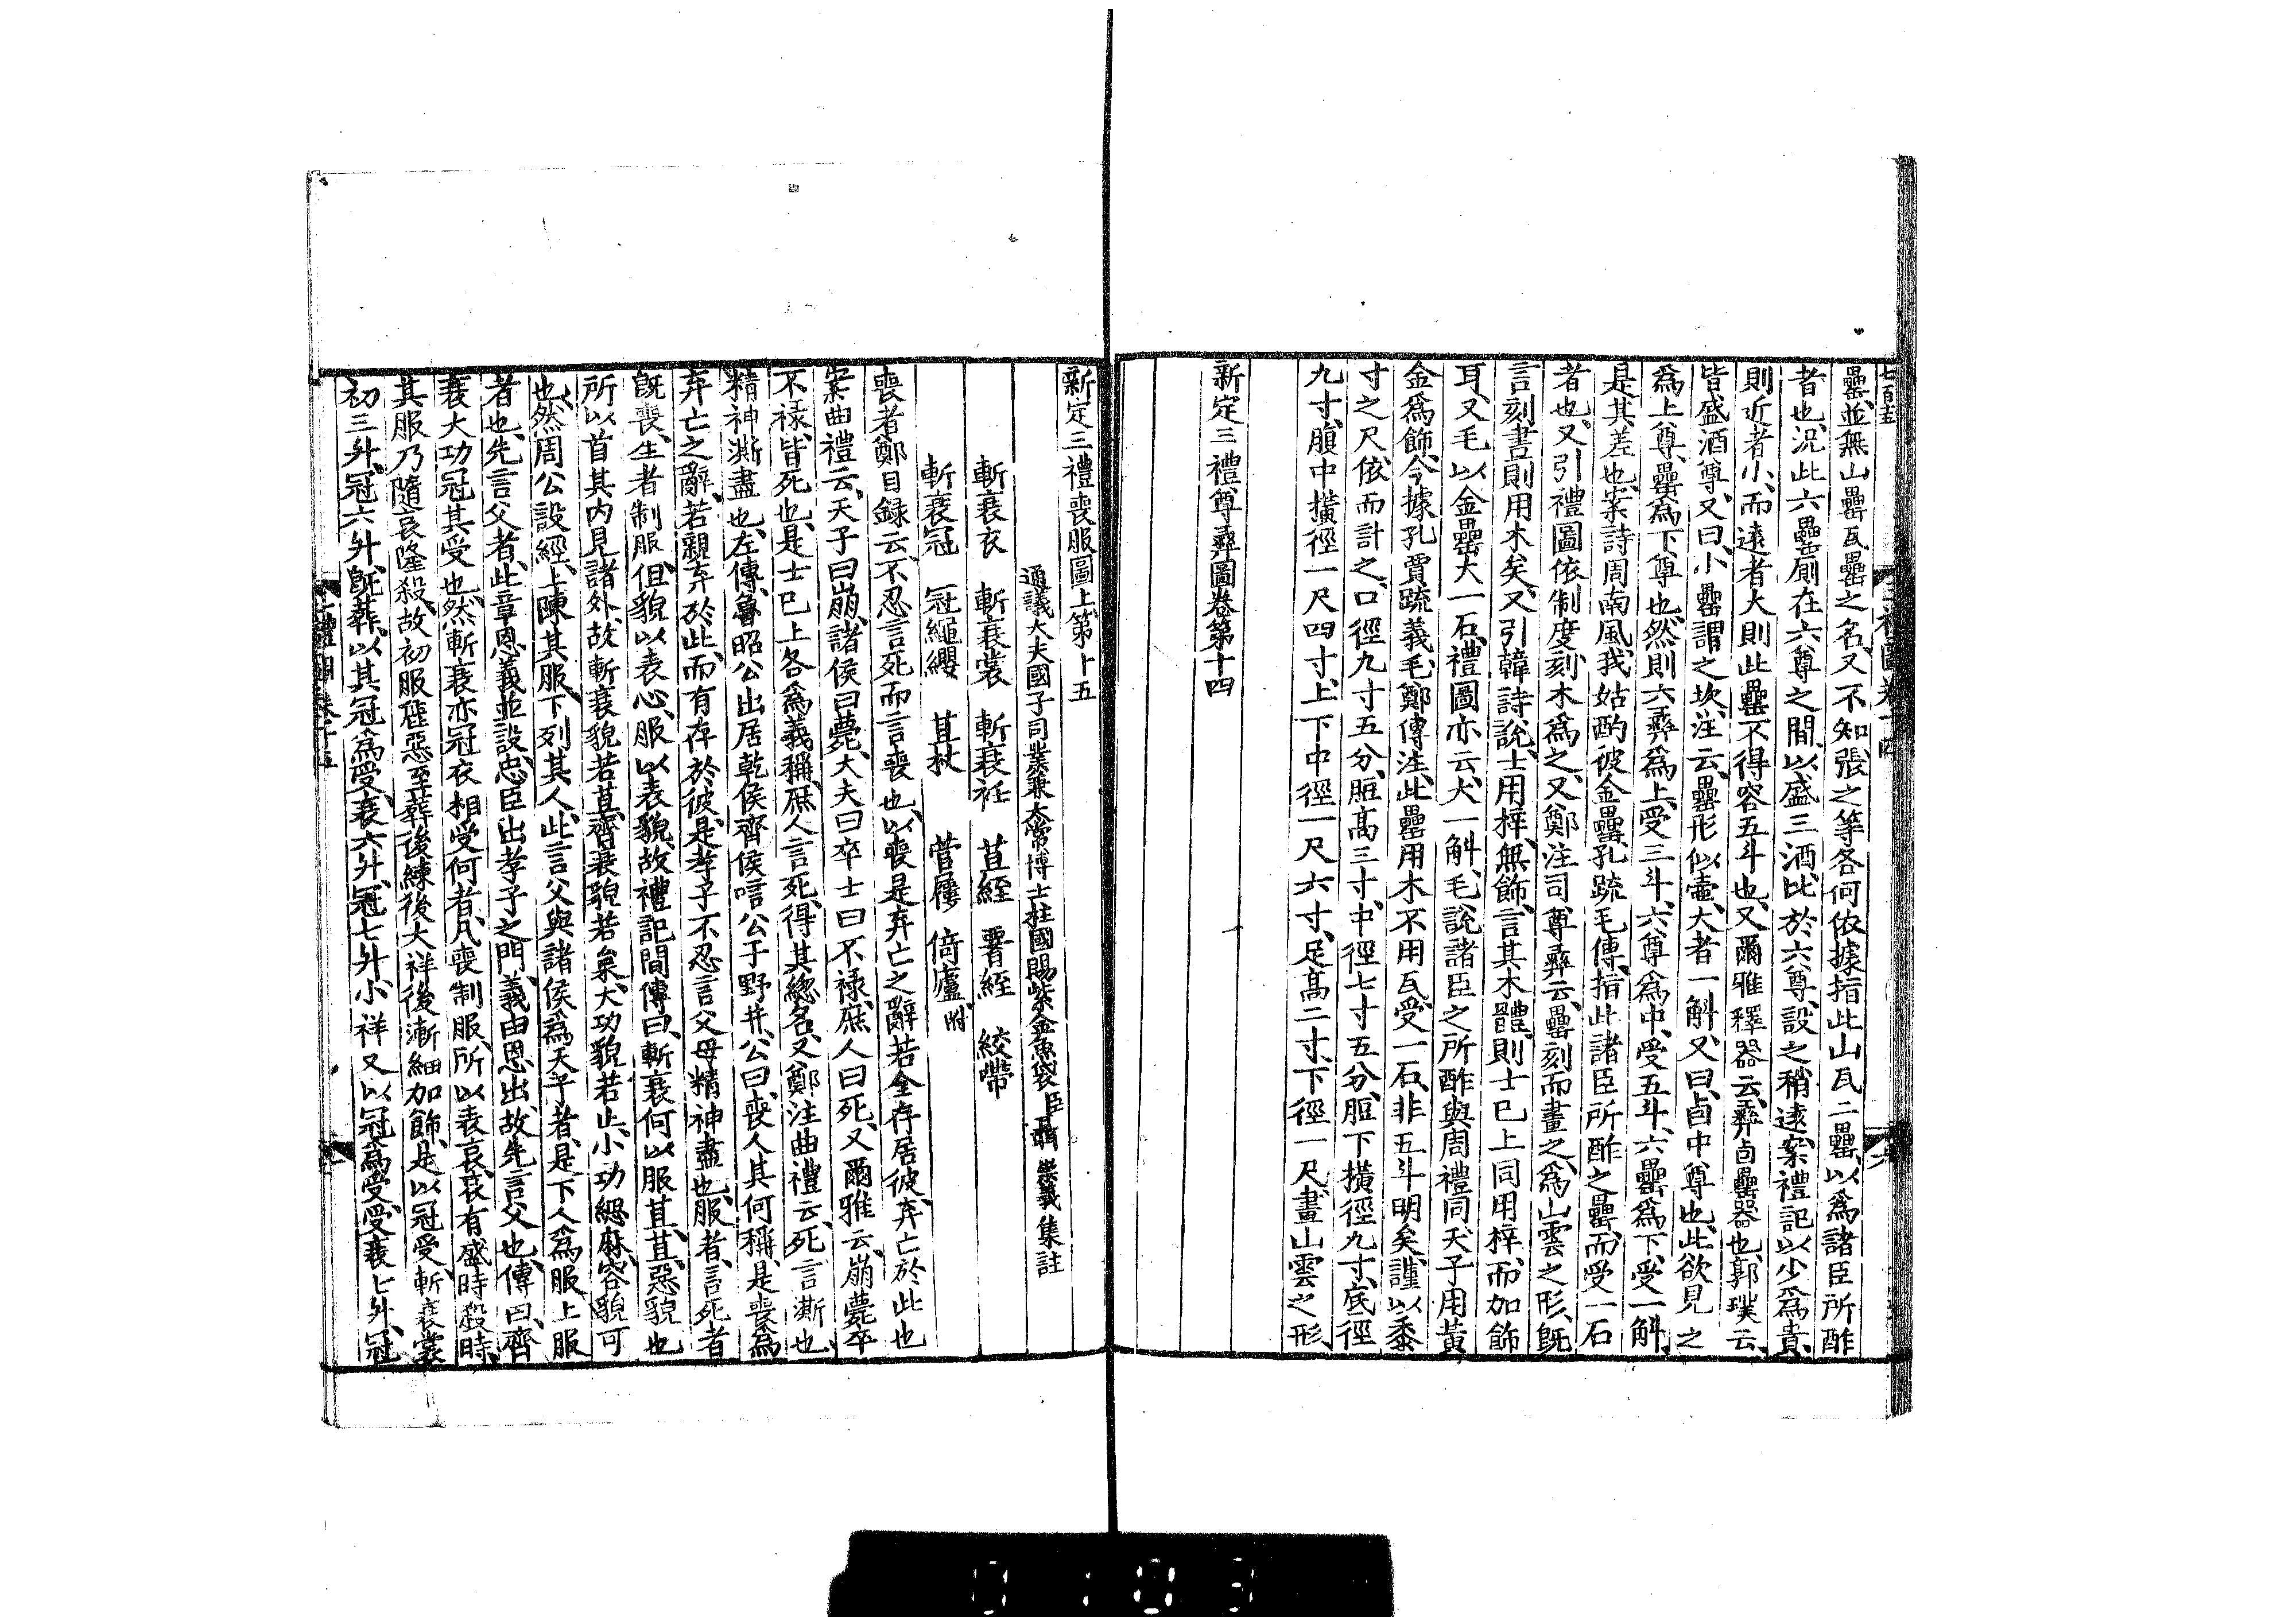 七百五
罍並無山罍瓦罍之名又不知張之等各何依據指此山瓦二罍以爲諸臣所酢
者也況此六罍厠在六尊之間以盛三酒比於六尊設之稍遠案禮記以少爲貴
則近者小而遠者大則此罍不得容五斗也又爾雅釋器云彝卣罍器也郭璞云
皆盛酒尊又曰小罍謂之坎注云罍形似壷大者一斛又曰卣中尊也此欲見之
爲上尊罍爲下尊也然則六彝爲上受三斗六尊爲中受五斗六罍爲下受一斛
是其差也案詩周南風我姑酌彼金罍孔疏毛傳指此諸臣所酢之罍而受一石
者也又引禮圖依制度刻木爲之又鄭注司尊彝云罍刻而畫之爲山雲之形旣
言刻畫則用木矣又引韓詩說士用梓無飾言其木體則士已上同用梓而加飾
耳又毛以金罍大一石禮圖亦云大一斛毛說諸臣之所酢與周禮同天子用黃
金爲飾今據孔賈疏義毛鄭傳注此罍用木不用瓦受一石非五斗明矣謹以黍
寸之尺依而計之口徑九寸五分脰高三寸中徑七寸五分脰下橫徑九寸底徑
九寸腹中橫徑一尺四寸上下中徑一尺六寸足高二寸下徑一尺畫山雲之形
新定三禮尊彝圖卷第十四
新定三禮喪服圖上第十五
通議大夫國子司業兼太常博士柱國賜紫金魚袋臣聶崇義集註
斬衰衣 斬衰裳 斬衰衽 苴絰 署絰 絞帶
斬衰冠 冠繩纓 苴杖 菅屨 倚廬附
喪者鄭目録云不忍言死而言喪也以喪是弃亡之辭若全存居彼弃亡於此也
案曲禮云天子曰崩諸侯曰薨大夫曰卒士曰不禄庶人曰死又爾雅云崩薨卒
不禄皆死也是士已上各爲義稱庶人言死得其緫名又鄭注曲禮云死言澌也
精神澌盡也左傳魯昭公出居乾侯齊侯唁公于野井公曰喪人其何稱是喪爲
弃亡之辭若親弃於此而有存於彼是孝子不忍言父母精神盡也服者言死者
旣喪生者制服但貌以表心服以表貌故禮記間傳曰斬衰何以服苴苴惡貌也
所以首其内見諸外故斬衰貌若苴齊衰貌若枲大功貌若止小功緦麻容貌可
也然周公設經上陳其服下列其人此言父與諸侯爲天子者是下人爲服上服
者也先言父者此章恩義並設忠臣出孝子之門義由恩出故先言父也傳曰齊
衰大功冠其受也然斬衰亦冠衣相受何者凡喪制服所以表哀哀有盛時殺時
其服乃隨哀隆殺故初服麤惡至葬後練後大祥後漸細加飾是以冠受斬衰裳
初三升冠六升旣葬以其冠爲受衰六升冠七升小祥又以冠爲受受衰七升冠
0103